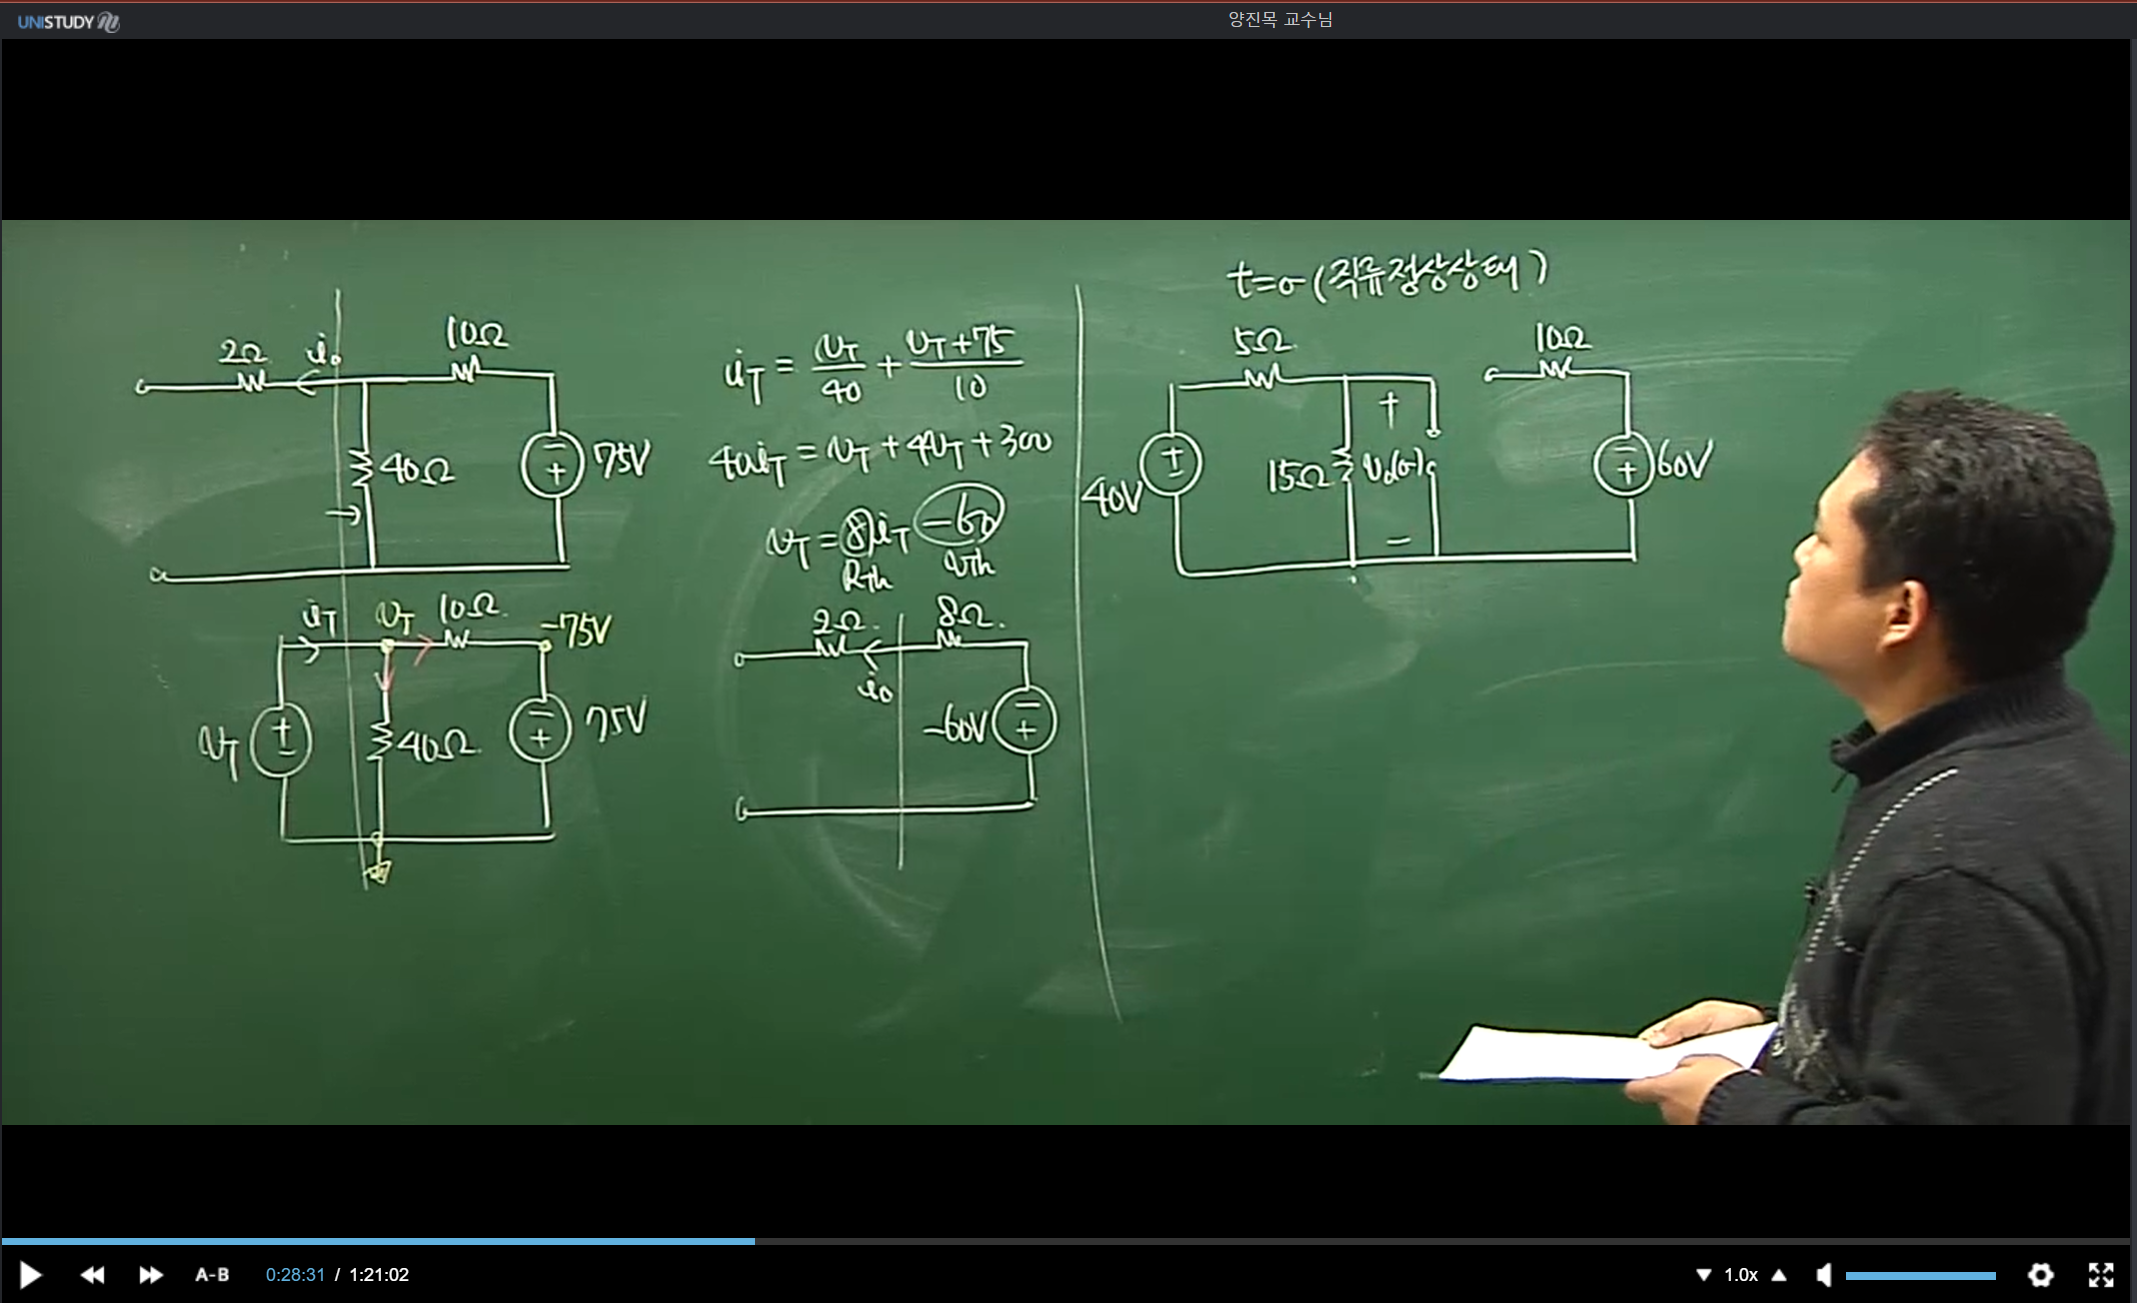 UNISTUDY
양진목 교수님
2Ω
i₀
10Ω
40Ω
75V
i_T
v_T
10Ω
-75V
v_T
40Ω
75V
i_T = v_T/40 + (v_T+75)/10
40i_T = v_T + 4v_T + 300
v_T = 8i_T -60
R_th
v_th
2Ω
8Ω
i₀
-60V
t=0- (직류정상상태)
5Ω
10Ω
40V
15Ω
v₀(0-)
60V
A-B
0:28:31 / 1:21:02
1.0x